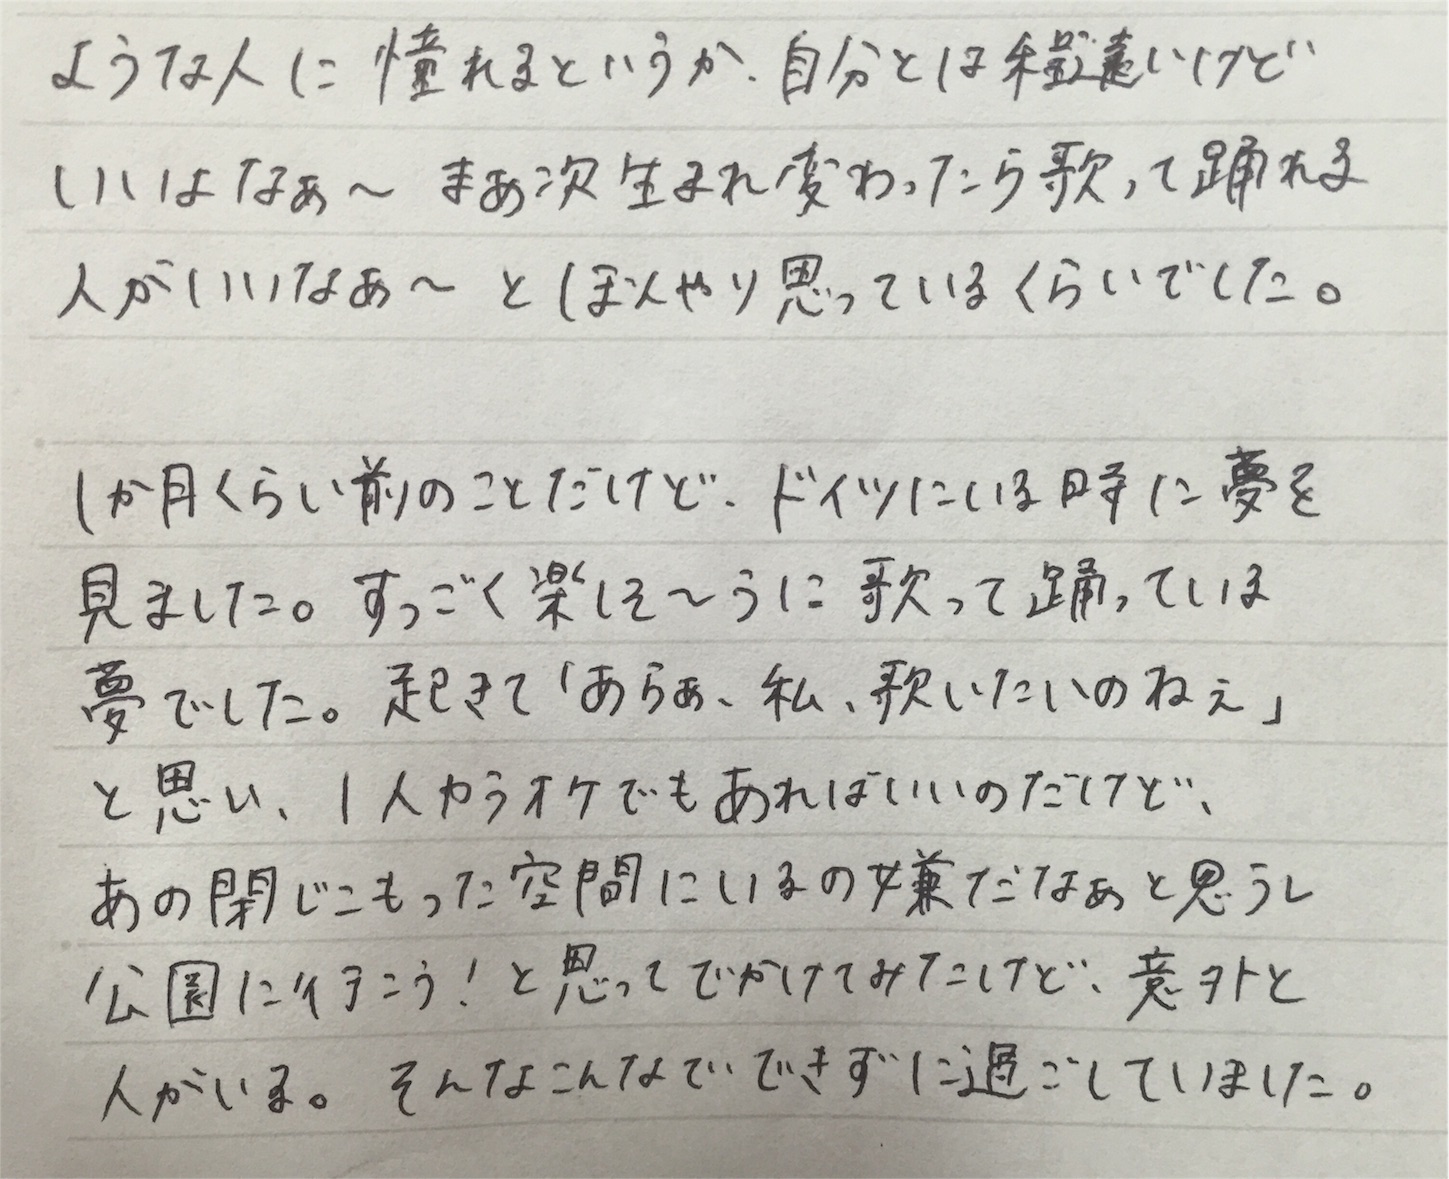 ような人に憧れるというか、自分とは程遠いけど
いいよなぁ〜 まぁ次生まれ変わったら歌って踊れる
人がいいなぁ〜 とぼんやり思っているくらいでした。
1か月くらい前のことだけど、ドイツにいる時に夢を
見ました。すっごく楽しそ〜うに歌って踊っている
夢でした。起きて「あらぁ、私、歌いたいのねぇ」
と思い、1人カラオケでもあればいいのだけど、
あの閉じこもった空間にいるの嫌だなぁと思うし
公園に行こう!と思ってでかけてみたけど、意外と
人がいる。そんなこんなでできずに過ごしていました。